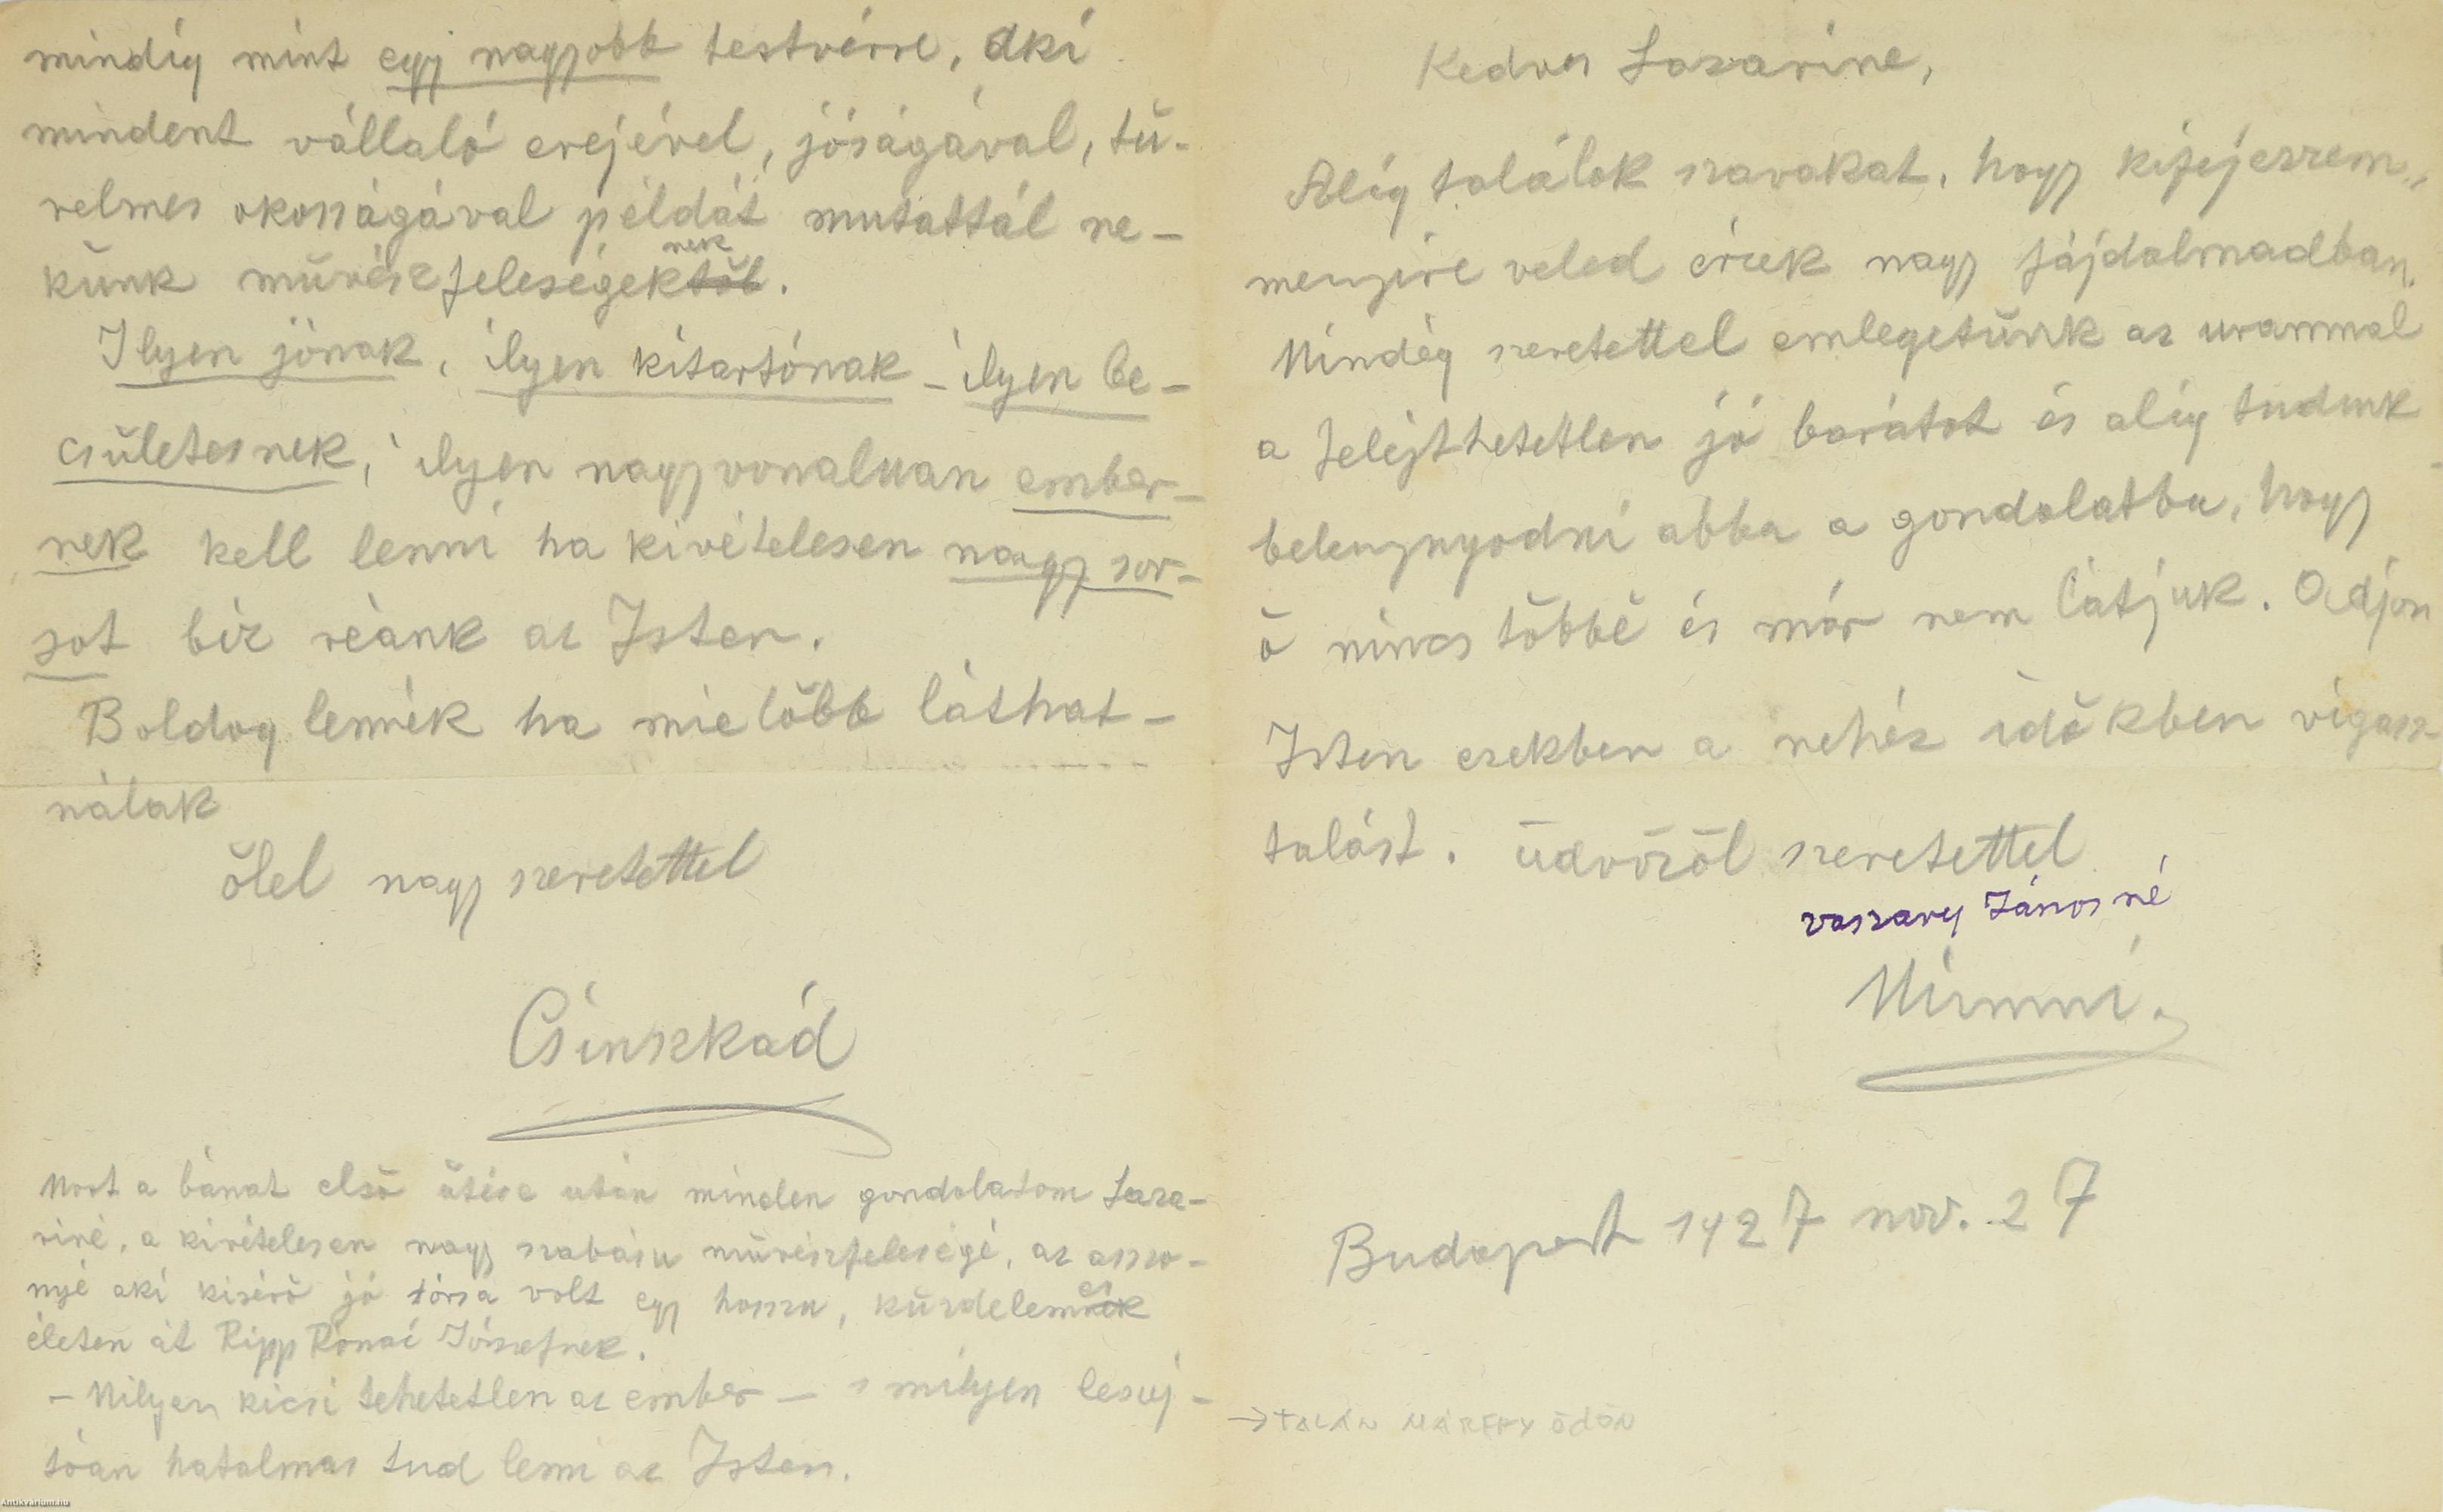 mindíg mint egy nagyobb testvérre, aki
mindent vállaló erejével, jóságával, tü-
relmes okosságával példát mutattál ne-
künk művészfeleségektőlnek.
Ilyen jónak, ilyen kitartónak - ilyen be-
csületesnek, ilyen nagyvonaluan ember-
nek kell lenni ha kivételesen nagy sor-
sot bíz reánk az Isten.
Boldog lennék ha mielőbb láthat-
nálak
ölel nagy szeretettel
Csinszkád
Most a bánat első ütése után minden gondolatom Laza-
riné, a kivételesen nagy szabásu művészfeleségé, az asszo-
nyé aki kisérő jó társa volt egy hosszu, küzdelmes
életen át Ripp Rónai Józsefnek.
- Milyen kicsi tehetetlen az ember - s milyen lesúj-
tóan hatalmas tud lenni az Isten.
Kedves Lazarine,
Alíg találok szavakat, hogy kifejezzem,
menyire veled érzek nagy fájdalmadban.
Mindég szeretettel emlegetünk az urammal
a felejthetetlen jó barátot és alíg tudunk
belenyugodni abba a gondolatba, hogy
ő nincs többé és már nem látjuk. Adjon
Isten ezekben a nehéz időkben vigasz
talást. Üdvözöl szeretettel
Vaszary Jánosné
Mimmi.
Budapest 1927 nov. 27
→ TALÁN MÁRFFY ÖDÖN
Antikvarium.hu